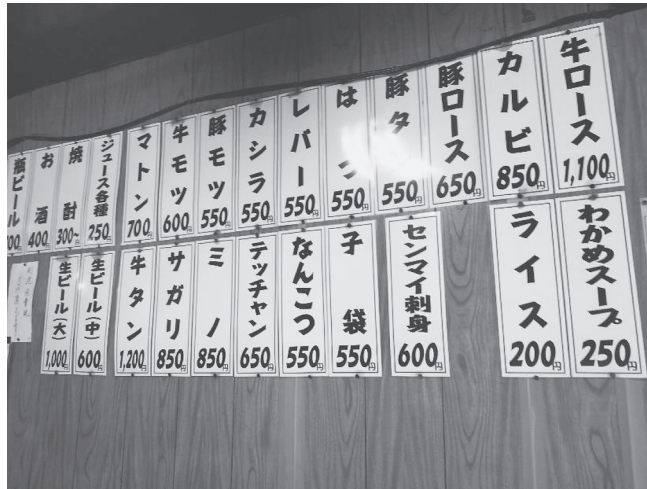 牛ロース 1,100円
カルビ 850円
豚ロース 650円
豚タン 550円
はつ 550円
レバー 550円
カシラ 550円
豚モツ 550円
牛モツ 600円
マトン 700円
ジュース各種 250円
焼酎 300~
お酒 400円
瓶ビール
わかめスープ 250円
ライス 200円
センマイ刺身 600円
子袋 550円
なんこつ 550円
テッチャン 650円
ミノ 850円
サガリ 850円
牛タン 1,200円
生ビール(中) 600円
生ビール(大) 1,000円